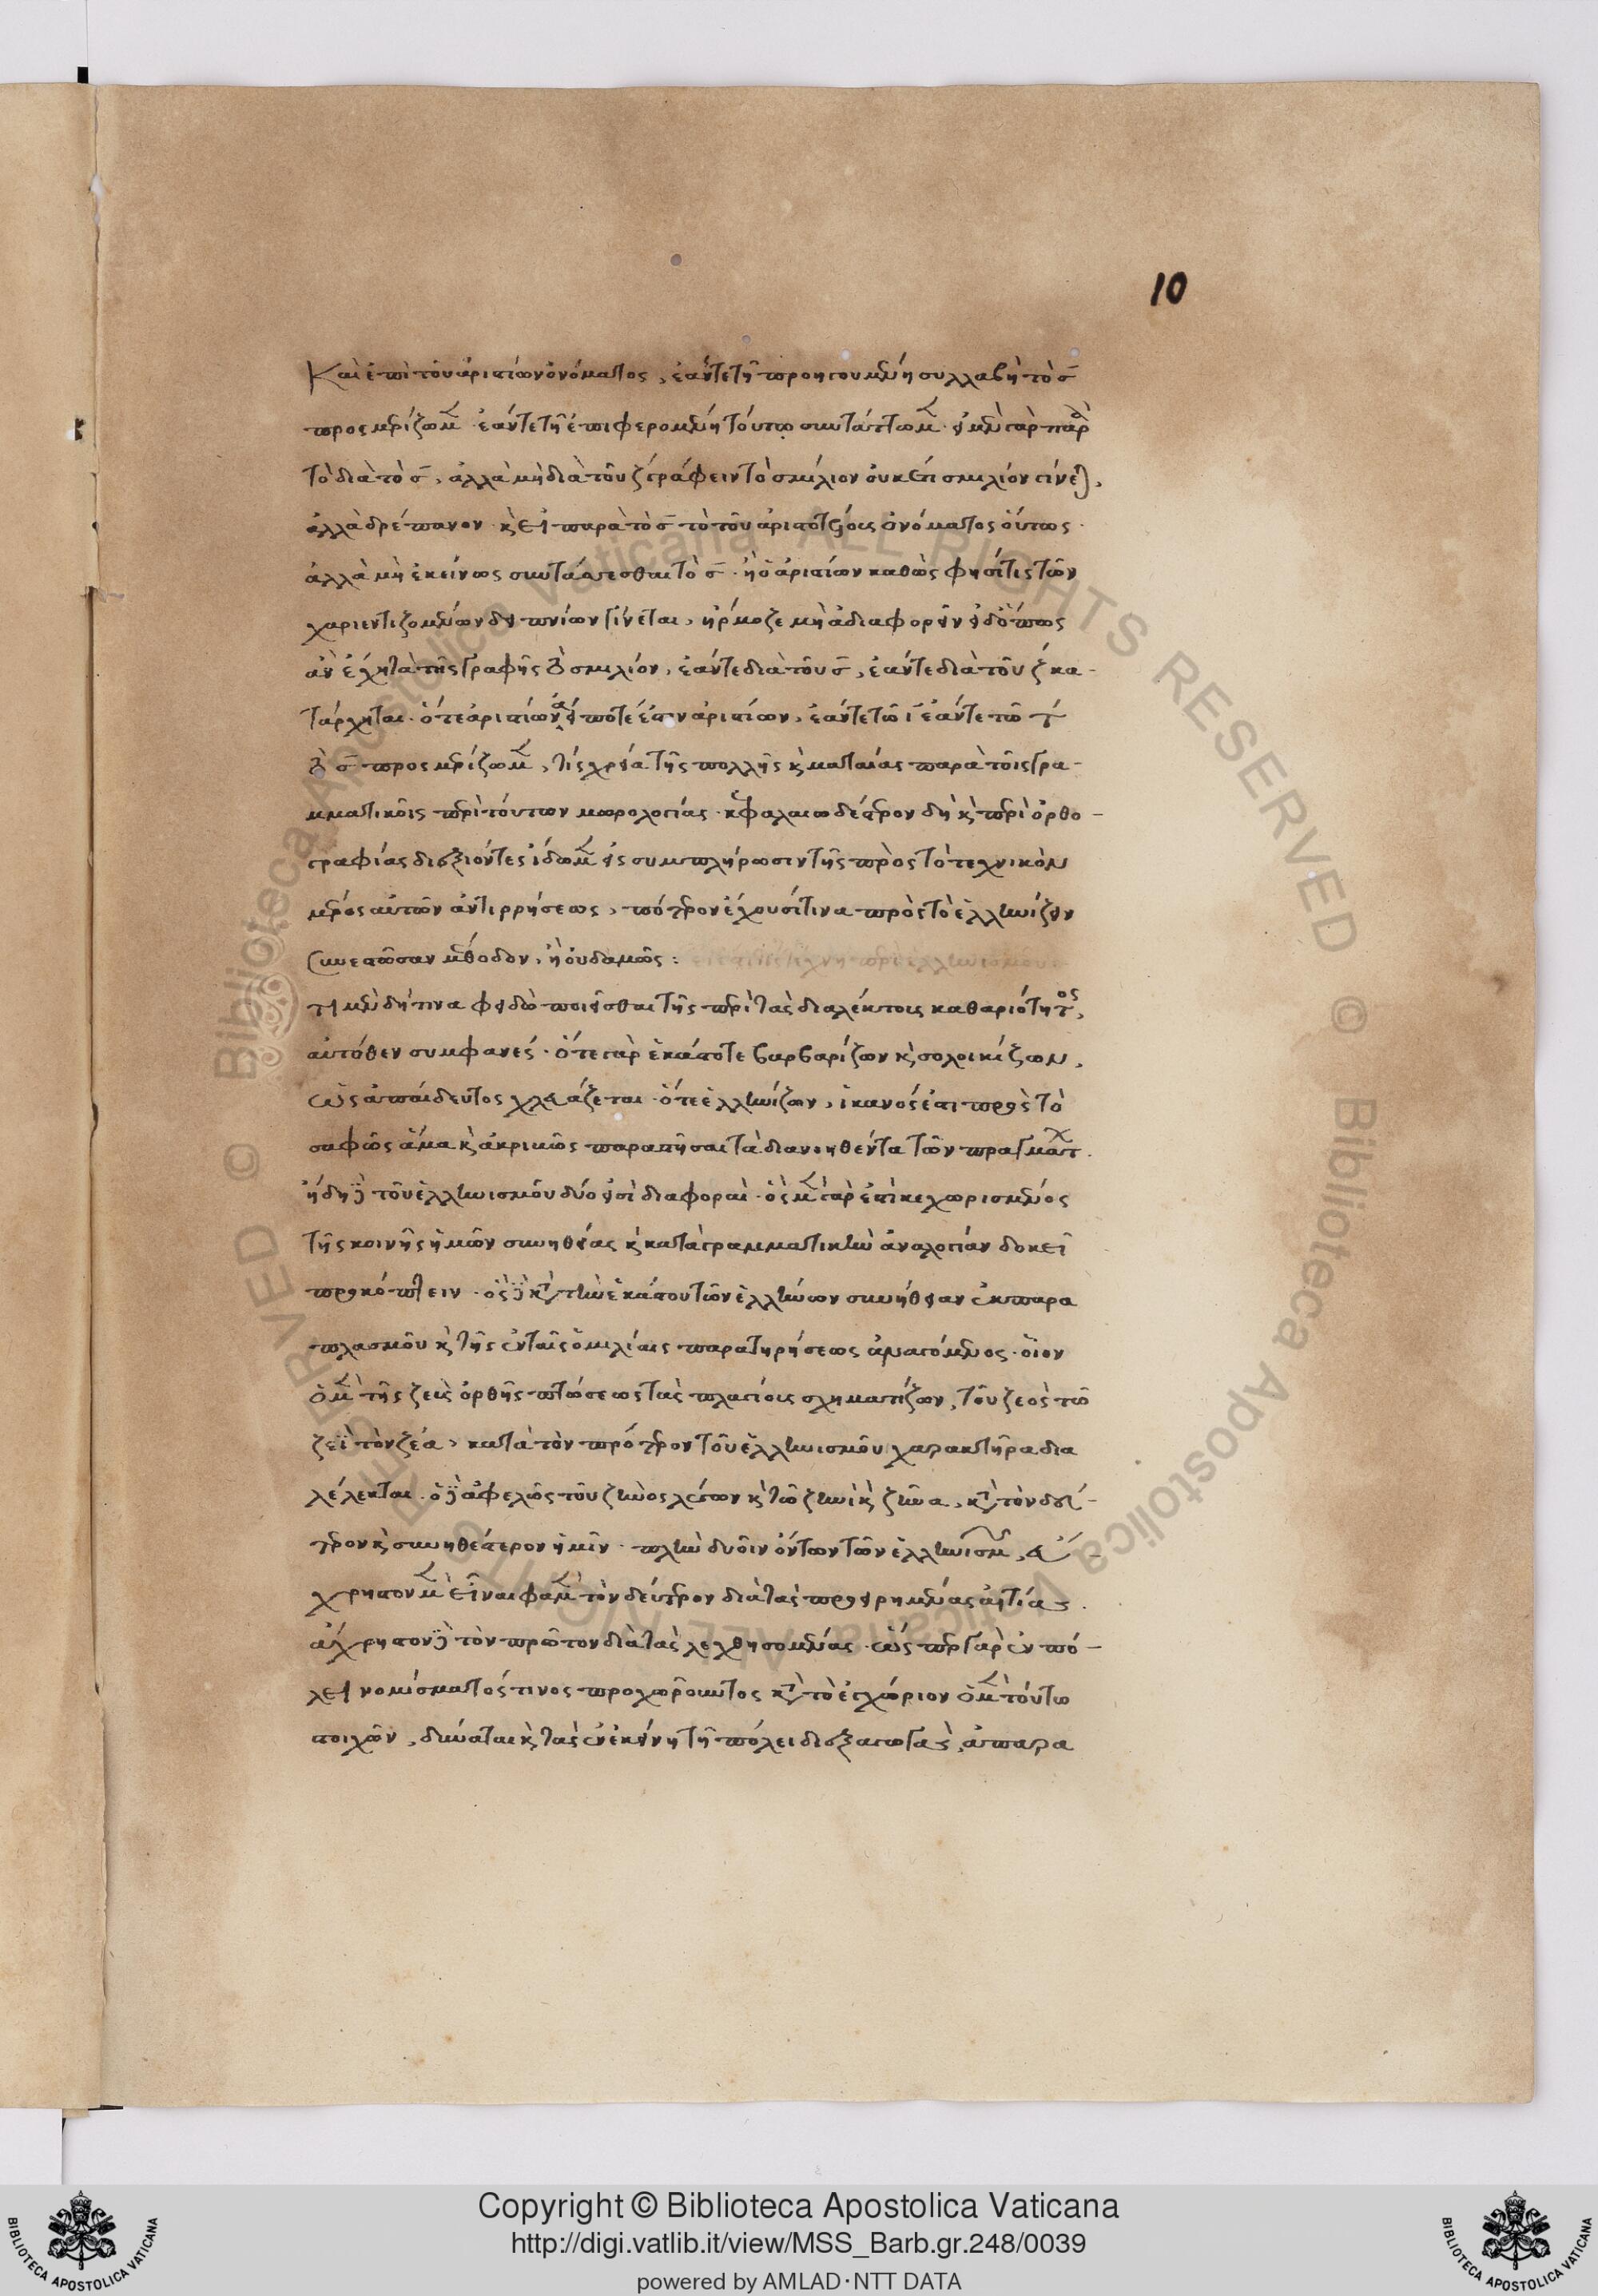 10
Καὶ ἐπὶ τοῦ ἀριστίων ὀνόματος, ἐάν τε τῇ προηγουμένῃ συλλαβῇ τὸ σ̅
προσμερίζωμεν· ἐάν τε τῇ ἐπιφερομένῃ τοῦτο συντάττωμεν· εἰ μὲν γὰρ παρὰ
τὸ διὰ τὸ σ̅, ἀλλὰ μὴ διὰ τοῦ ζ γράφειν τὸ σμιλίον οὐκέτι σμιλίον γίνεται,
ἀλλὰ δρέπανον· κὶ εἰ παρὰ τὸ σ̅ τὸ τοῦ ἀριστ ὀνόματος οὕτως·
ἀλλὰ μὴ ἐκείνως συντάσσεσθαι τὸ σ̅· ἢ ὁ ἀριστίων καθώς φησί τις τῶν
χαριεντιζομένων δειπνίων γίνεται, ἥρμοζε μὴ ἀδιαφορεῖν εἰ δ' ὅπως
ἂν ἔχῃ τὰ τῆς γραφῆς τὸ σμιλίον, ἐάν τε διὰ τοῦ σ̅, ἐάν τε διὰ τοῦ ζ κα-
τάρχηται· ὅ τε ἀριστίων ἀεί ποτέ ἐστιν ἀριστίων, ἐάν τε τῷ ι̅ ἐάν τε τῷ τ
τὸ σ̅ προσμερίζωμεν, τίς χρεία τῆς πολλῆς κὶ ματαίας παρὰ τοῖς γρα-
μματικοῖς περὶ τούτων μωρολογίας· κεφαλαιωδέστερον δὴ κὶ περὶ ὀρθο-
γραφίας διεξιόντες ἴδωμεν εἰς συμπλήρωσιν τῆς πρὸς τὸ τεχνικὸν
μέρος αὐτῶν ἀντιρρήσεως, πότερον ἔχουσί τινα πρὸς τὸ ἑλληνίζειν
συνεστῶσαν μέθοδον, ἢ οὐδαμῶς: εἰ ἔστι τις τέχνη περὶ ἑλληνισμοῦ:
Τι μὲν δή τινα φειδὼ ποιεῖσθαι τῆς περὶ τὰς διαλέκτους καθαριότητος,
αὐτόθεν συμφανές· ὅ τε γὰρ ἑκάστοτε βαρβαρίζων κὶ σολοικίζων,
ὡς ἀπαίδευτος χλευάζεται· ὅ τε ἑλληνίζων, ἱκανός ἐστι πρὸς τὸ
σαφῶς ἅμα κὶ ἀκριβῶς παραστῆσαι τὰ διανοηθέντα τῶν πραγμάτων.
ἤδη δὲ τοῦ ἑλληνισμοῦ δύο εἰσὶ διαφοραί· ὃς μὲν γάρ ἐστι κεχωρισμένος
τῆς κοινῆς ἡμῶν συνηθείας κὶ κατὰ γραμματικὴν ἀναλογίαν δοκεῖ
προκόπτειν· ὃς δὲ κατὰ τὴν ἑκάστου τῶν ἑλλήνων συνήθειαν ἐκ παρα
πλασμοῦ κὶ τῆς ἐν ταῖς ὁμιλίαις παρατηρήσεως ἀναγόμενος· οἷον
ὁ μὲν τῆς ζεὺς ὀρθῆς πτώσεως τὰς πλαγίους σχηματίζων, τοῦ ζεὸς τῷ
ζεῒ τὸν ζέα, κατὰ τὸν πρότερον τοῦ ἑλληνισμοῦ χαρακτῆρα δια
λέλεκται· ὁ δὲ ἀφελῶς τοῦ ζηνὸς λέγων κὶ τῷ ζηνὶ κὶ ζῆνα, κατὰ τὸν δεύ-
τερον κὶ συνηθέστερον ἡμῖν· πλὴν δυοῖν ὄντων τῶν ἑλληνισμῶν, εὔ-
χρηστον μὲν εἶναι φαμὲν τὸν δεύτερον διὰ τὰς προειρημένας αἰτίας.
ἄχρηστον δὲ τὸν πρῶτον διὰ τὰς λεχθησομένας· ὥσπερ γὰρ ἐν πό-
λει νομίσματός τινος προχωροῦντος κατὰ τὸ ἐγχώριον ὁ μὲν τούτῳ
στοιχῶν, δύναται κὶ τὰς ἐν ἐκείνῃ τῇ πόλει διεξαγωγὰς, ἀπαρα
Copyright © Biblioteca Apostolica Vaticana
http://digi.vatlib.it/view/MSS_Barb.gr.248/0039
powered by AMLAD·NTT DATA
BIBLIOTECA APOSTOLICA VATICANA
BIBLIOTECA APOSTOLICA VATICANA